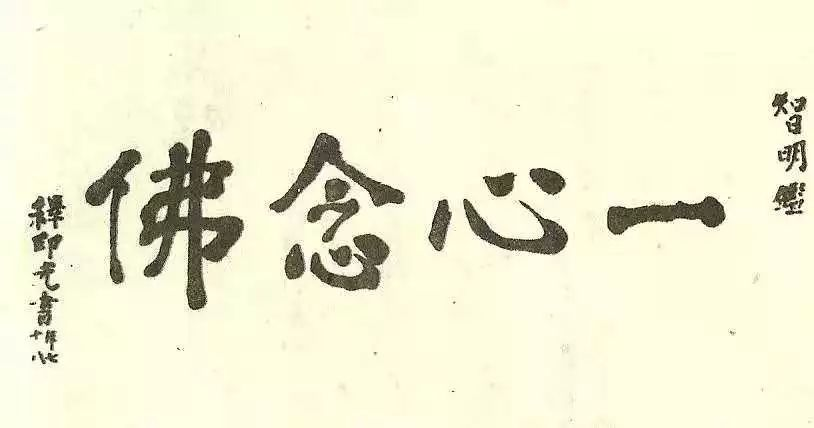 智明鑑
一心念佛
釋印光書
年七十八